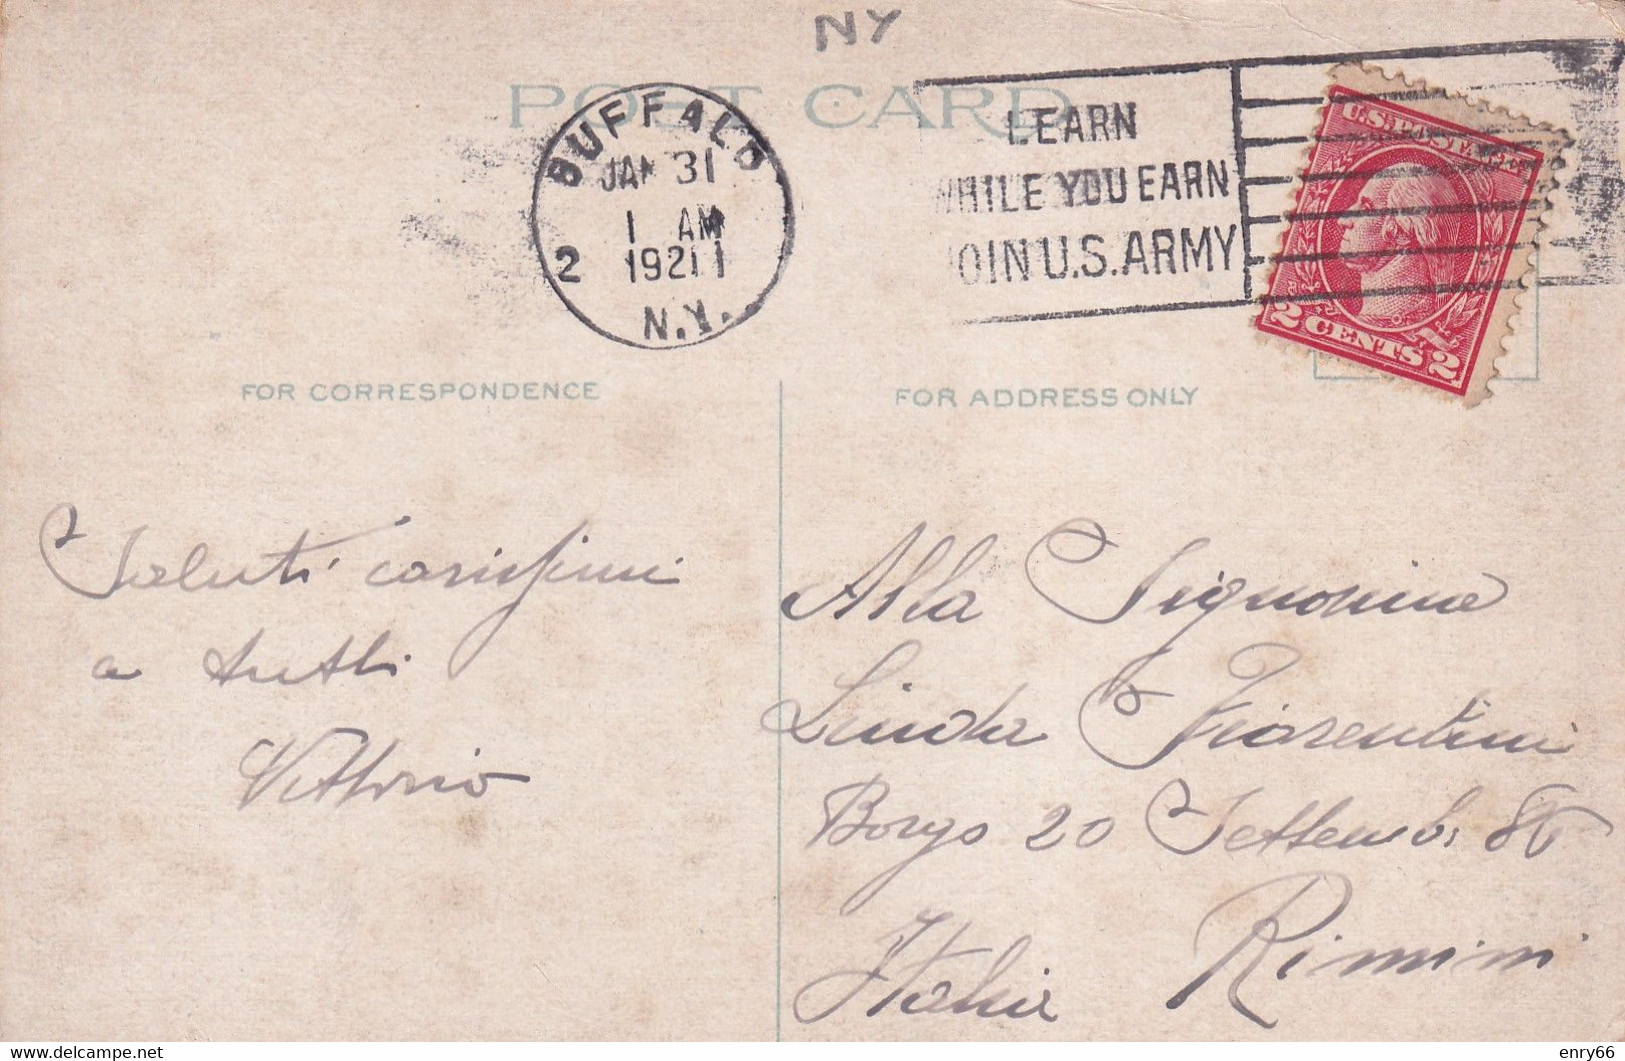 NY
POST CARD
BUFFALO
JAN 31
1 AM
2 1921 1
N.Y.
LEARN
WHILE YOU EARN
JOIN U.S. ARMY
U.S. POSTAGE
2 CENTS 2
FOR CORRESPONDENCE
FOR ADDRESS ONLY
Saluti carissimi
a tutti
Vittorio
Alla Signorina
Linda Fiorentini
Borgo 20 Settemb. 86
Rimini
Italia
enry66
delcampe.net